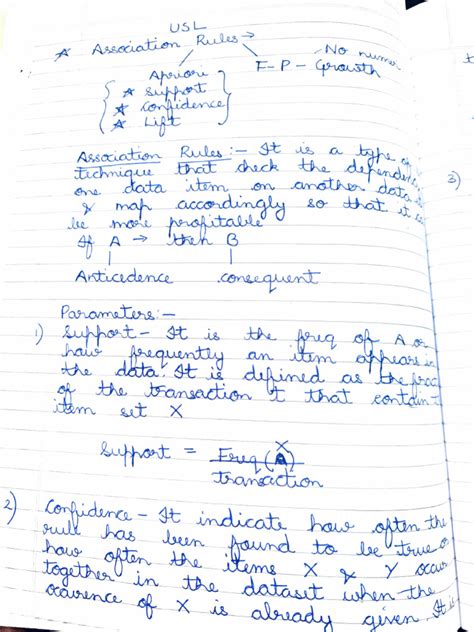 USL
★ Association Rules →
No numer
Apriori F-P-Growth
★ support
★ confidence
★ Lift
Association Rules:- It is a type of
technique that check the dependenc
one data item on another data
& map accordingly so that it is
be more profitable
If A → then B
Anticedence consequent
Parameters:-
1) Support - It is the freq of A or
how frequently an item appears in
the data. It is defined as the frac
of the transaction t that contain
item set X
Support = Freq(X)
transaction
2) Confidence - It indicate how often the
rule has been found to be true or
how often the items X & Y occur
together in the dataset when the
ocurence of X is already given. It is
3)